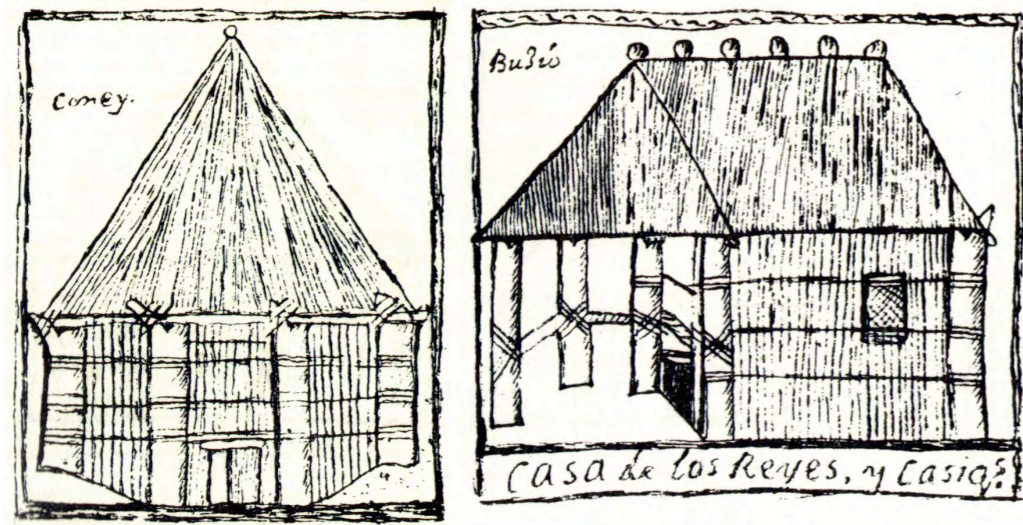 Caney.
Buhío
Casa de los Reyes, y Casiqs.